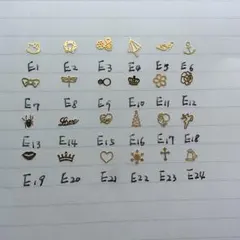 E1 E2 E3 E4 E5 E6
E7 E8 E9 E10 E11 E12
Love
E13 E14 E15 E16 E17 E18
E19 E20 E21 E22 E23 E24